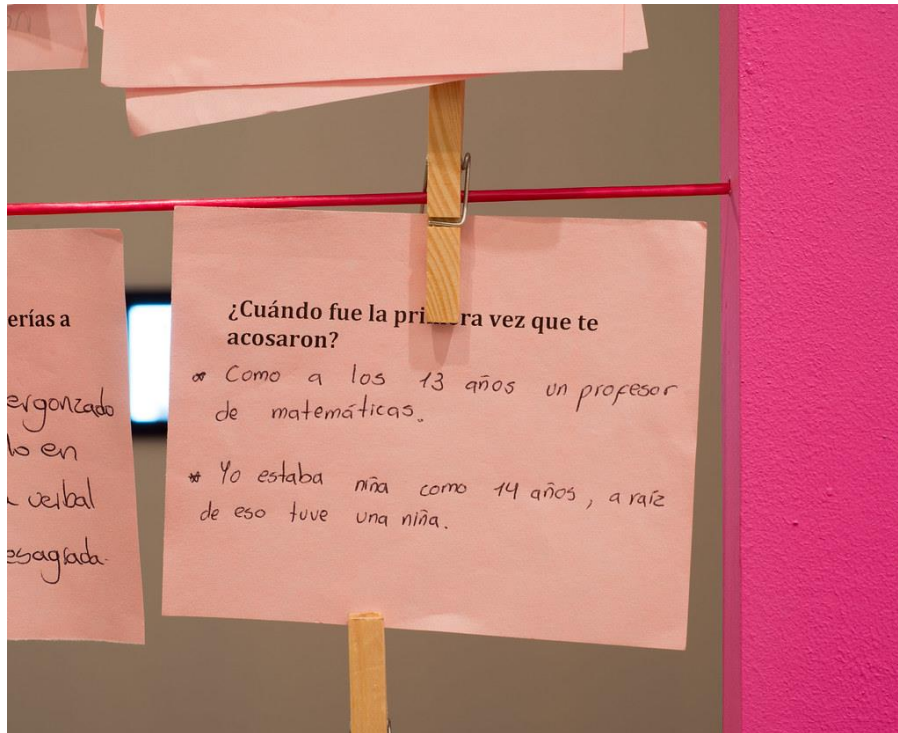 erías a
ergonzado
lo en
verbal
esagrada.
¿Cuándo fue la pri ra vez que te
acosaron?
* Como a los 13 años un profesor
de matemáticas.
* Yo estaba niña como 14 años, a raíz
de eso tuve una niña.